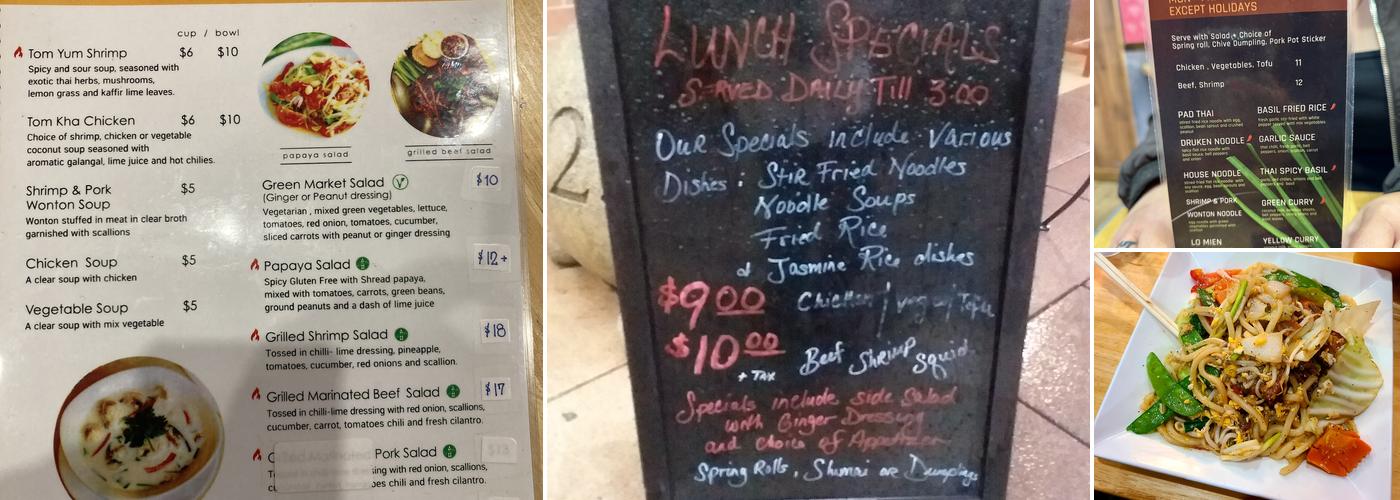 cup / bowl
Tom Yum Shrimp $6 $10
Spicy and sour soup, seasoned with
exotic thai herbs, mushrooms,
lemon grass and kaffir lime leaves.
Tom Kha Chicken $6 $10
Choice of shrimp, chicken or vegetable
coconut soup seasoned with
aromatic galangal, lime juice and hot chilies.
Shrimp & Pork $5
Wonton Soup
Wonton stuffed in meat in clear broth
garnished with scallions
Chicken Soup $5
A clear soup with chicken
Vegetable Soup $5
A clear soup with mix vegetable
papaya salad
grilled beef salad
Green Market Salad V $10
(Ginger or Peanut dressing)
Vegetarian , mixed green vegetables, lettuce,
tomatoes, red onion, tomatoes, cucumber,
sliced carrots with peanut or ginger dressing
Papaya Salad $12+
Spicy Gluten Free with Shread papaya,
mixed with tomatoes, carrots, green beans,
ground peanuts and a dash of lime juice
Grilled Shrimp Salad $18
Tossed in chilli- lime dressing, pineapple,
tomatoes, cucumber, red onions and scallion.
Grilled Marinated Beef Salad $17
Tossed in chilli-lime dressing with red onion, scallions,
cucumber, carrot, tomatoes chili and fresh cilantro.
Pork Salad
ing with red onion, scallions,
oes chili and fresh cilantro.
LUNCH SPECIALS
SERVED DAILY Till 3:00
Our Specials include Various
Dishes: Stir Fried Noodles
Noodle Soups
Fried Rice
Jasmine Rice dishes
$9.00 Chicken / veg
$10.00 Beef Shrimp Squid
+ TAX
Specials include side Salad
with Ginger Dressing
and choice of Appetizer
Spring Rolls, Shumai or Dumplings
EXCEPT HOLIDAYS
Serve with Salad + Choice of
Spring roll, Chive Dumpling, Pork Pot Sticker
Chicken , Vegetables, Tofu 11
Beef, Shrimp 12
PAD THAI
DRUKEN NOODLE
HOUSE NOODLE
SHRIMP & PORK
WONTON NOODLE
LO MIEN
BASIL FRIED RICE
GARLIC SAUCE
THAI SPICY BASIL
GREEN CURRY
YELLOW CURRY